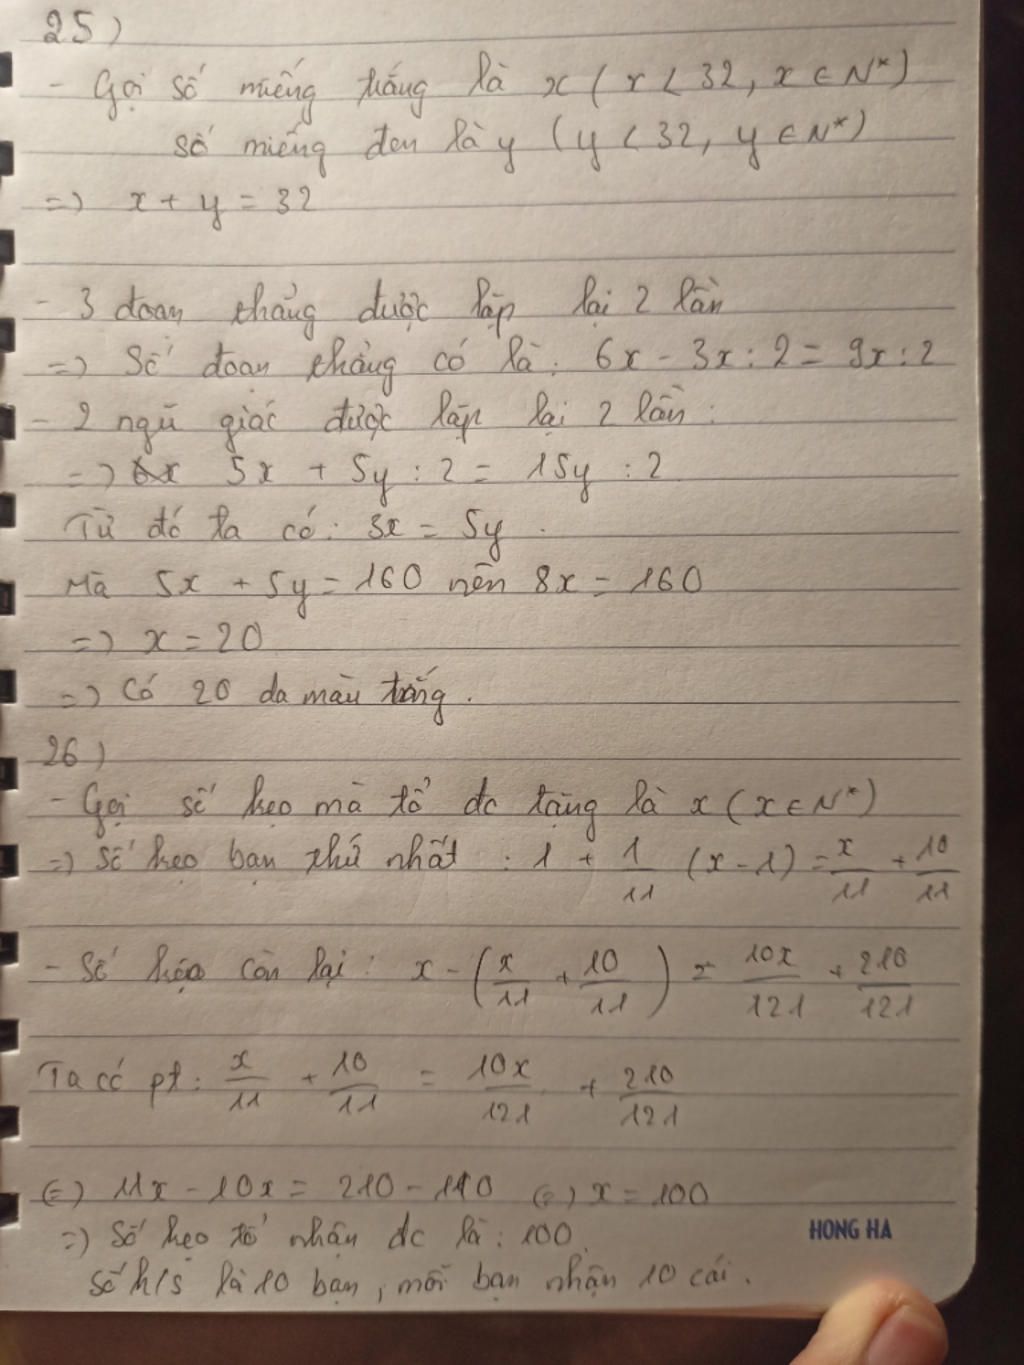 25)
- Gọi số miếng trắng là x (x < 32, x ∈ N*)
số miếng đen là y (y < 32, y ∈ N*)
=> x + y = 32
- 3 đoạn thẳng được lặp lại 2 lần
=> Số đoạn thẳng có là: 6x - 3x : 2 = 9x : 2
- 2 ngũ giác được lặp lại 2 lần:
=> 5x + 5y : 2 = 15y : 2
Từ đó ta có: 3x = 5y.
Mà 5x + 5y = 160 nên 8x = 160
=> x = 20
=> Có 20 da màu trắng.
26)
- Gọi số kẹo mà tổ đc tặng là x (x ∈ N*)
=> Số kẹo bạn thứ nhất: 1 + 1/11 (x - 1) = x/11 + 10/11
- Số kẹo còn lại: x - (x/11 + 10/11) = 10x/121 + 210/121
Ta có pt: x/11 + 10/11 = 10x/121 + 210/121
(=) 11x - 10x = 210 - 110 (=) x = 100
=> Số kẹo tổ nhận đc là: 100.
Số h/s là 10 bạn, mỗi bạn nhận 10 cái.
HONG HA